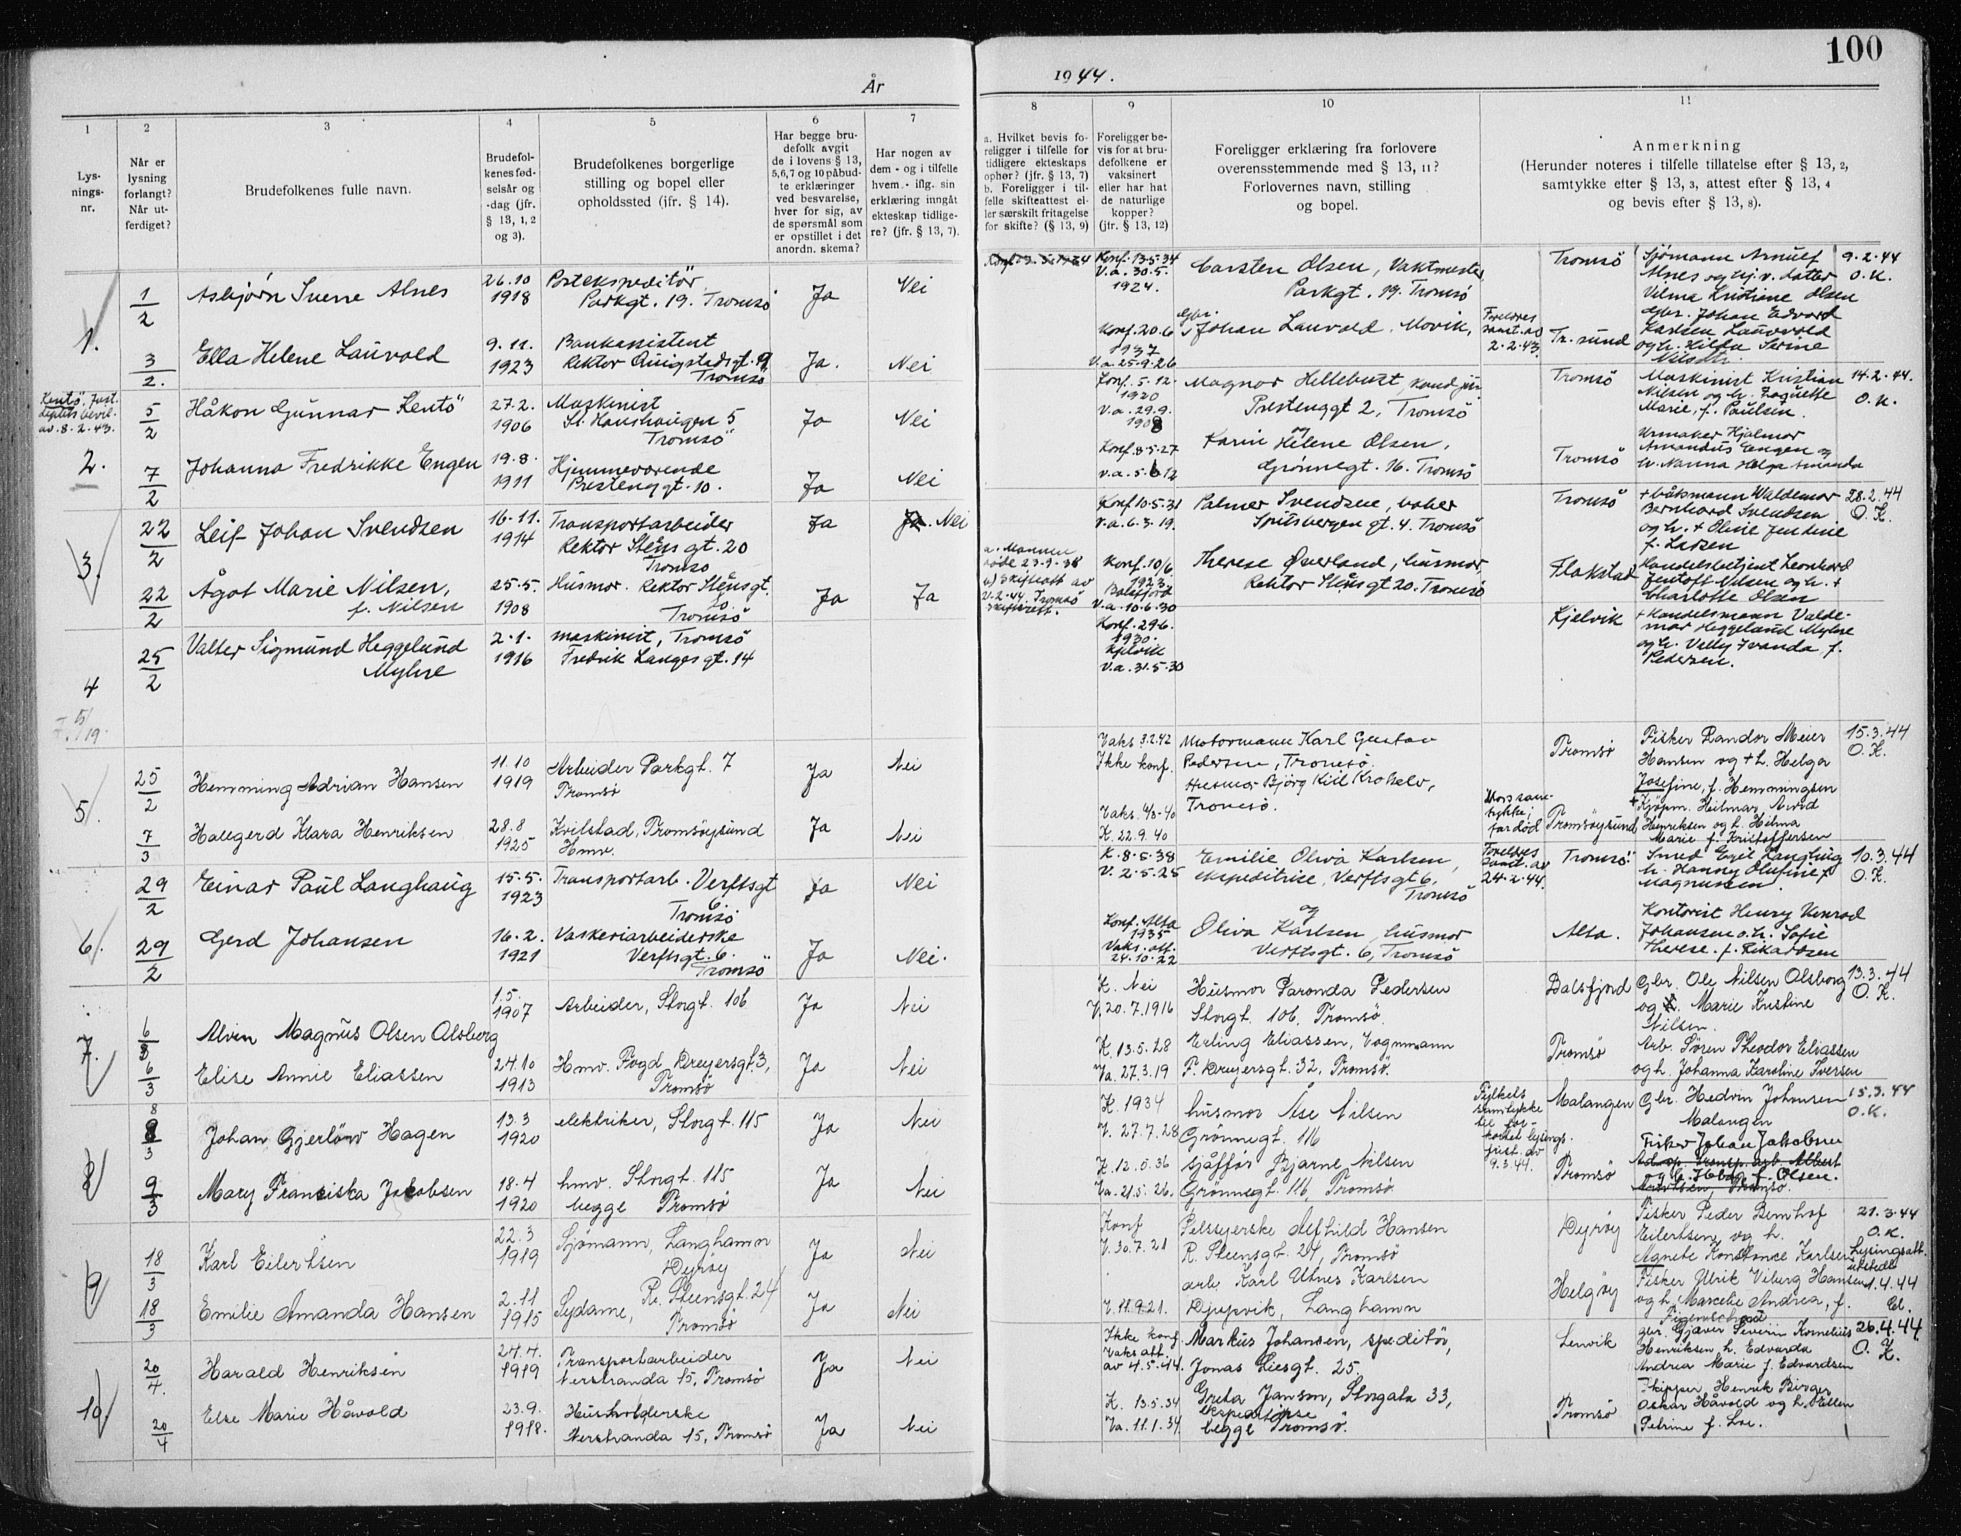 100
År
1944.
1
2
3
4
5
6
7
8
9
10
11
Lys-
nings-
nr.
Når er
lysning
forlangt?
Når ut-
ferdiget?
Brudefolkenes fulle navn.
Brudefol-
kenes fød-
selsår og
-dag (jfr.
§ 13, 1, 2
og 3).
Brudefolkenes borgerlige
stilling og bopel eller
opholdssted (jfr. § 14).
Har begge bru-
defolk avgit
de i lovens § 13,
5,6,7 og 10 påbud-
te erklæringer
ved besvarelse,
hver for sig, av
de spørsmål som
er opstillet i det
anordn. skema?
Har nogen av
dem - og i tilfelle
hvem - iflg. sin
erklæring inngått
ekteskap tidlige-
re? (jfr. § 13, 7).
a. Hvilket bevis fo-
religger i tilfelle for
tidligere ekteskaps
ophør? (jfr. § 13, 7)
b. Foreligger i til-
felle skifteattest el-
ler særskilt fritagelse
for skifte? (§ 13, 9)
Foreligger be-
vis for at bru-
defolkene er
vaksinert
eller har hat
de naturlige
kopper?
(jfr. § 13, 12)
Foreligger erklæring fra forlovere
overensstemmende med § 13, 11?
Forlovernes navn, stilling
og bopel.
Anmerkning
(Herunder noteres i tilfelle tillatelse efter § 13, 2,
samtykke efter § 13, 3, attest efter § 13, 4
og bevis efter § 13, 8).
1.
1/2
Asbjørn Sverre Alnes
26.10
1918
Postekspeditör
Parkgt. 19. Tromsö
Ja
Nei
Konf. 13.5.34
V.a. 30.5.
1924.
Carsten Olsen, Vaktmester
Parkgt. 19. Tromsö
Tromsö
Sjømann Arnulf
Alnes og
Vilma Kristiane Olsen
9.2.44
O.K.
3/2.
Ella Helene Lauvold
9.11.
1923
Bankassistent
Rektor Qvigstadsgt. 9
Tromsö
Ja.
Nei
Konf. 20.6
1937
V.a. 25.9.26
Gbr. Johan Lauvold, Movik,
Foreldres
samt. av
2.2.43.
Tr.sund
Gbr. Johan Edvard
Karsen Lauvold
og h. Hilda Serine
Nilsdtr.
Kentö. Just.
dep.ts bevil.
av. 8.2.43.
2.
5/2
Håkon Gunnar Kentö
27.2.
1906
Maskinist
St. Hanshaugen 5
Tromsö
Ja
Nei
Konf. 5.12
1920
V.a. 29.9.
1908
Magnor Hellebust, kand. jur.
Prestenggt 2, Tromsö
og
Tromsö
Maskinist Kristian
Nilsen og h. Jaquette
Marie, f. Paulsen.
14.2.44.
O.K.
7/2
Johanna Fredrikke Engen
19.8.
1911
Hjemmeværende
Prestenggt. 10.
Ja
Nei
Konf. 8.5.27
v.a. 5.6.12
Karin Helene Olsen,
Grönnegt. 16. Tromsö
Tromsö
Urmaker Hjalmar
Amandus Engen og
h. Nanna Helga Amanda
3.
22/2
Leif Johan Svendsen
16.11.
1914
Transportarbeider
Rektor Steens gt. 20
Tromsö
Ja
Ja. Nei
Konf. 10.5.31
v.a. 6.3.19.
Palmer Svendsen, baker
Spilsbergen gt. 4. Tromsö
Tromsö
+ båtsmann Waldemar
Bernhard Svendsen
og h. + Oline Jentine
f. Larsen
28.2.44
O.K.
22/2
Ågot Marie Nilsen,
f. Nilsen
25.5.
1908
Husmor. Rektor Steensgt.
20.
Tromsö
Ja
Ja
a. Mannen
döde 23.9.38
b) Skifteatt av
21.2.44. Tromsö
skifterett.
Konf. 10/6
1923.
Balsfjord
V.a. 10.6.30
Therese Överland, husmor,
Rektor Steensgt 20. Tromsö
Flakstad
Handelsbetjent Leonhard
Jentoft Nilsen og h. +
Charlotte Olsen
4
25/2
Valter Sigmund Heggelund
Myhre
2.1.
1916
maskinist, Tromsö
Fredrik Langes gt. 14
Konf. 29.6.
1930.
Kjelvik
v.a. 31.5.30
Kjelvik
+ Handelsmann Valde-
mar Heggelund Myhre
og h. Valley Ivanda, f.
Pedersen.
5.
25/2
Hemming Adrian Hansen
11.10
1919
Arbeider Parkgt. 7
Tromsö
Ja
Nei
Vaks 3.2.42
Ikke konf.
Motormann Karl Gustav
Pedersen, Tromsö.
Tromsø
Fisker Randor Meier
Hansen og + h. Helga
Josefine, f. Hemmingsen
15.3.44
O.K.
7/3
Hallgerd Klara Henriksen
28.8
1925
Kvilstad, Tromsöysund
Hmv.
Ja
Nei
K. 22.9.40
Husmor Bjørg Kiil Krokelv,
Tromsö.
Mors sam-
tykke,
far död
Tromsöysund
+ Kjøpm. Hilmar Arvid
Henriksen og h. Hilma
Marie f. Kristoffersen
6.
29/2
Einar Paul Langhaug
15.5.
1923
Transportarb. Verftsgt
6.
Tromsö.
Ja
Nei
K. 8.5.38
V. 2.5.25
Emilie Oliva Karlsen,
ekspeditrise, Verftsgt 6,
Tromsö
og
Foreldres
samt. av
24.2.44.
Tromsö
Smed Egil Langhaug
h. Hanny Olufine f.
Magnussen.
10.3.44
O.K.
29/2
Gerd Johansen
16.2.
1921
Vaskeriarbeiderske
Verftsgt. 6.
Tromsö
Ja
Nei.
Konf. Alta
1935
Vaks. att.
24.10.22
Oliva Karlsen, husmor
Verftsgt. 6, Tromsö
Alta.
Kontorist Henry Konrad
Johansen o.h. Sofie
Therese. f. Rikardsen
7.
6/3
Alvin Magnus Olsen Olsborg
1.5.
1907
Arbeider, Storgt. 106
Ja
Nei
K. Nei
V. 20.7.1916
Husmor Paronda Pedersen
Storgt. 106. Tromsö.
Balsfjord
Gbr. Ole Nilsen Olsborg
og h. Marie Kristine
Nilsen.
13.3.44
O.K.
6/3
Elise Annie Eliassen
24.10
1913
Hmv. Fogd Dreyersgt. 3,
Tromsö
Ja
Nei
K. 13.5.28
Va. 27.3.19
Erling Eliassen, Vognmann
F. Dreyersgt. 32, Tromsö.
Tromsö
Arb. Sören Theodor Eliassen
og h. Johanna Karoline Iversen
8
8/3
Johan Gjerlöw Hagen
13.3
1920
elektriker, Storgt. 115
Ja
Nei
K. 1934
V. 27.7.28
husmor Åse Nilsen
Grönnegt. 116
Fylkets
samtykke
til for-
kortet lysings-
frist av
9.3.44.
Malangen
Gbr. Hedvin Johansen
Malangen
15.3.44
O.K.
9/3
Mary Franciska Jakobsen
18.4
1920
hmv. Storgt. 115
begge Tromsö
Ja
Nei
K. 12.5.36
Va. 21.5.26.
sjåffør Bjarne Nilsen
Grönnegt. 116, Tromsö
Tromsö
Fisker Johan Jakobsen
Ad.op. transp. arb. Albert
og h. f. Olsen.
9
18/3
Karl Eilertsen
22.3
1919
Sjömann, Langhamn
Dyröy
Ja
Nei
Konf
V. 30.7.21
Pelssyerske Alfhild Hansen
R. Steensgt. 24, Tromsö
Dyröy
Fisker Peder Bernhof
Eilertsen og h.
Agnete Konstance Karlsen
21.3.44
O.K.
Lysingsatt.
utstedt
1.4.44
18/3
Emilie Amanda Hansen
2.11
1915
Sydame, R. Steensgt. 24
Tromsö
Ja
Nei
V. 11.9.21.
arb. Karl Utnes Karlsen
Djupvik, Langhamn
Helgöy
Fisker Ulrik Viberg Hansen
og h. Marcelie Andrea, f.
Figenschaul
10
20/4.
Harald Henriksen
24.4.
1919
Transportarbeider
Nerstranda 15, Tromsö
Ja
Nei
Ikke konf.
Vaksatt.
av 4.5.44.
Markus Johansen, speditör,
Jonas Liesgt. 25.
Lenvik
gbr. Gjæver Severin Kornelius
Henriksen, h. Edvarda
Andrea Marie f. Edvardsen
26.4.44
O.K.
20/4
Else Marie Håvold
23.9.
1918.
Husholderske
Nerstranda 15, Tromsö
Ja
Nei
K. 13.5.34
Va. 11.1.34
Greta Janson, Storgata 33,
ekspeditrise
begge Tromsö.
Tromsö
Skipper Henrik Birger
Oskar Håvold og h. Ellen
Petrine f. Loe.